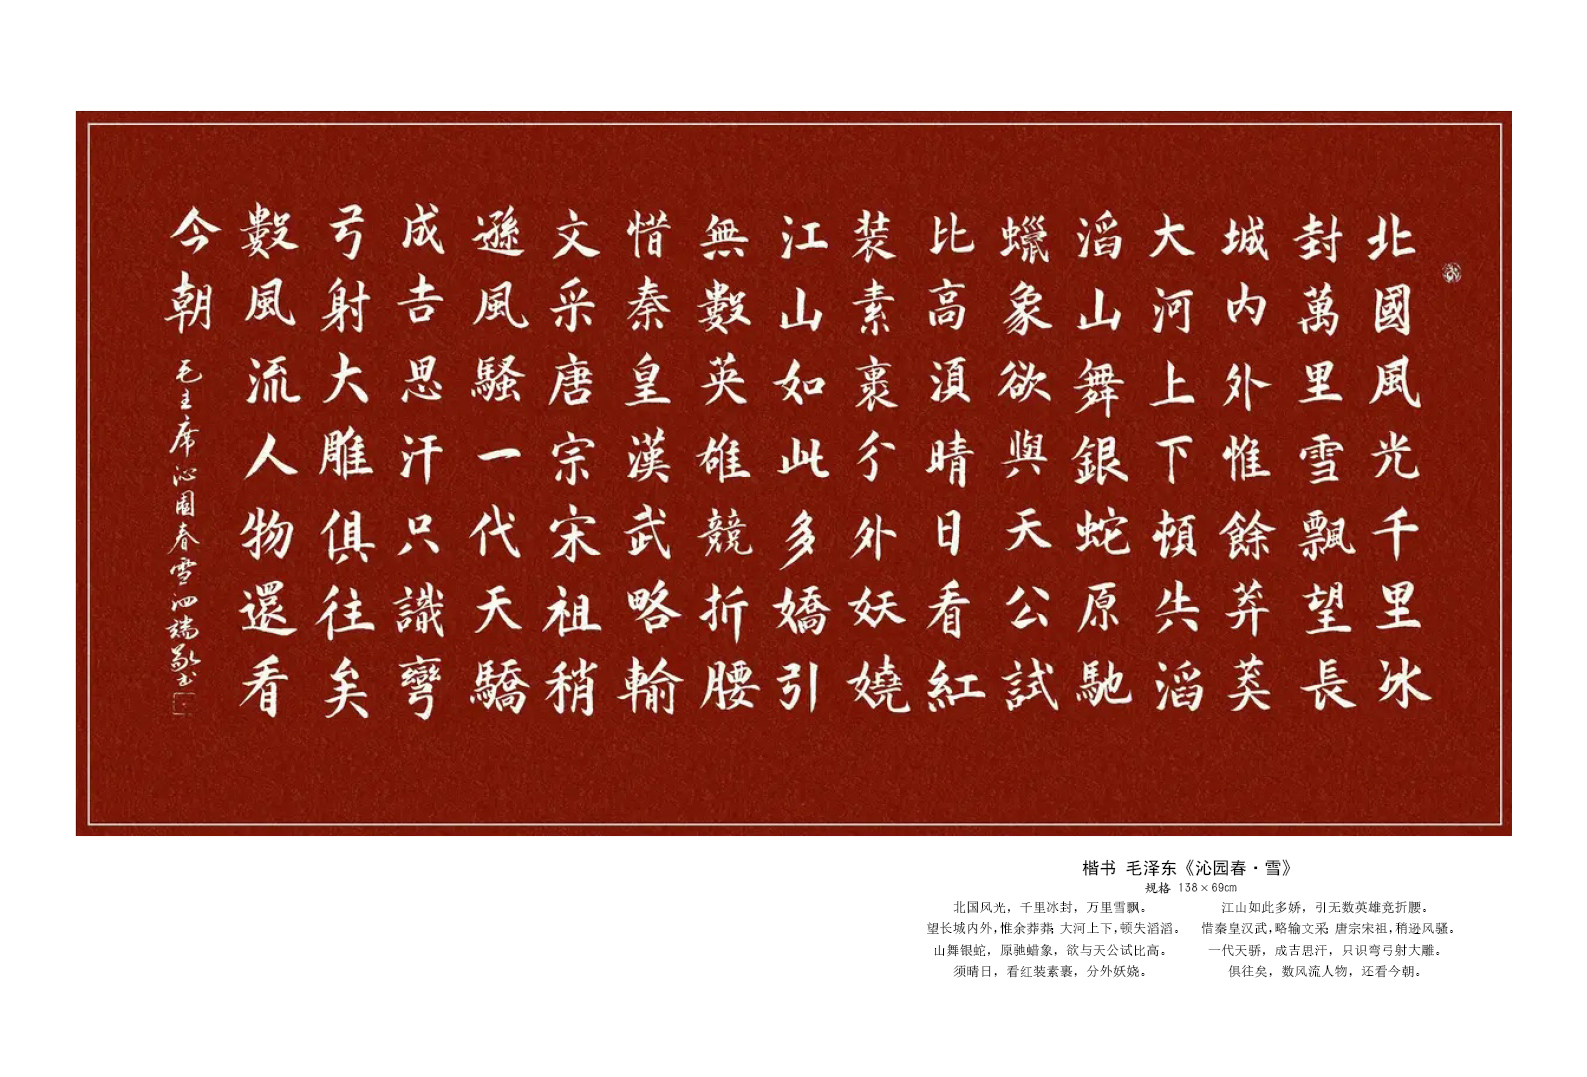 北國風光千里冰
封萬里雪飄望長
城内外惟餘莽莽
大河上下頓失滔
滔山舞銀蛇原馳
蠟象欲與天公試
比高須晴日看紅
装素裹分外妖嬈
江山如此多嬌引
無數英雄競折腰
惜秦皇漢武略輸
文采唐宗宋祖稍
遜風騷一代天驕
成吉思汗只識彎
弓射大雕俱往矣
數風流人物還看
今朝
毛主席沁園春雪泗端敬书
楷书 毛泽东《沁园春·雪》
规格 138×69cm
北国风光，千里冰封，万里雪飘。
望长城内外，惟余莽莽；大河上下，顿失滔滔。
山舞银蛇，原驰蜡象，欲与天公试比高。
须晴日，看红装素裹，分外妖娆。
江山如此多娇，引无数英雄竞折腰。
惜秦皇汉武，略输文采；唐宗宋祖，稍逊风骚。
一代天骄，成吉思汗，只识弯弓射大雕。
俱往矣，数风流人物，还看今朝。